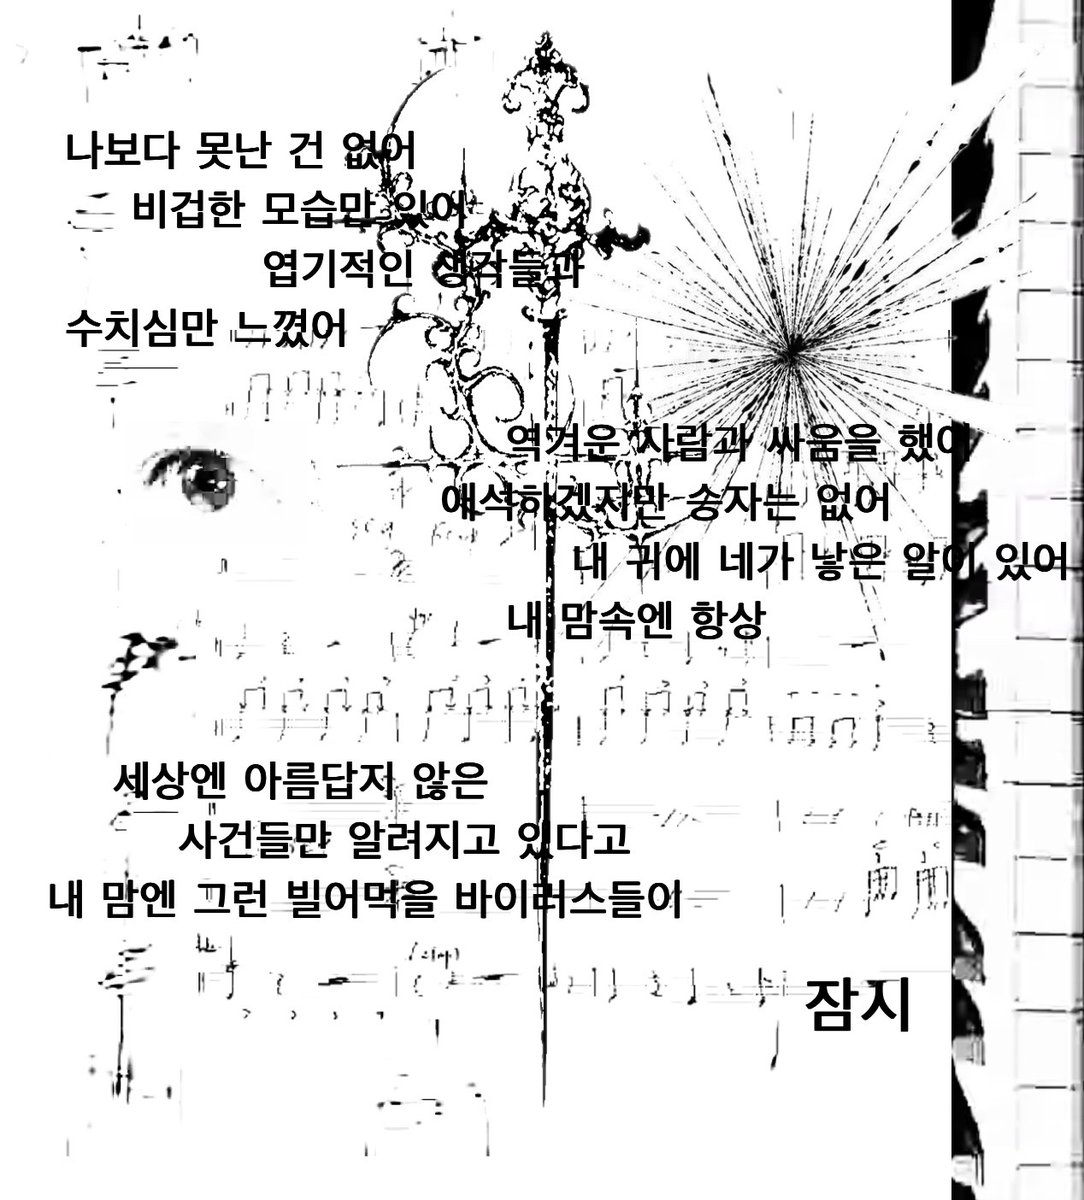 나보다 못난 건 없어
비겁한 모습만 있어
엽기적인 생각들과
수치심만 느꼈어
역겨운 사람과 싸움을 했어
애석하겠지만 승자는 없어
내 귀에 네가 낳은 알이 있어
내 맘속엔 항상
세상엔 아름답지 않은
사건들만 알려지고 있다고
내 맘엔 그런 빌어먹을 바이러스들이
잠지